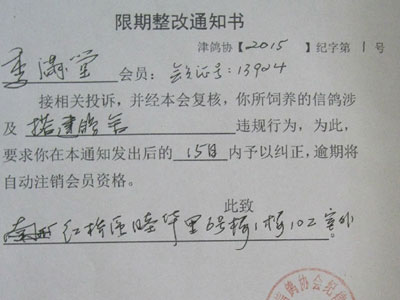 限期整改通知书
津鸽协【2015】纪字第 1 号
李满堂 会员:会员证号:13904
接相关投诉,并经本会复核,你所饲养的信鸽涉
及 搭建鸽舍 违规行为,为此,
要求你在本通知发出后的 15日 内予以纠正,逾期将
自动注销会员资格。
此致
红桥区睦华里6号楼1楼102室外
鸽协会纪